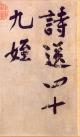 詩送四十
九姪